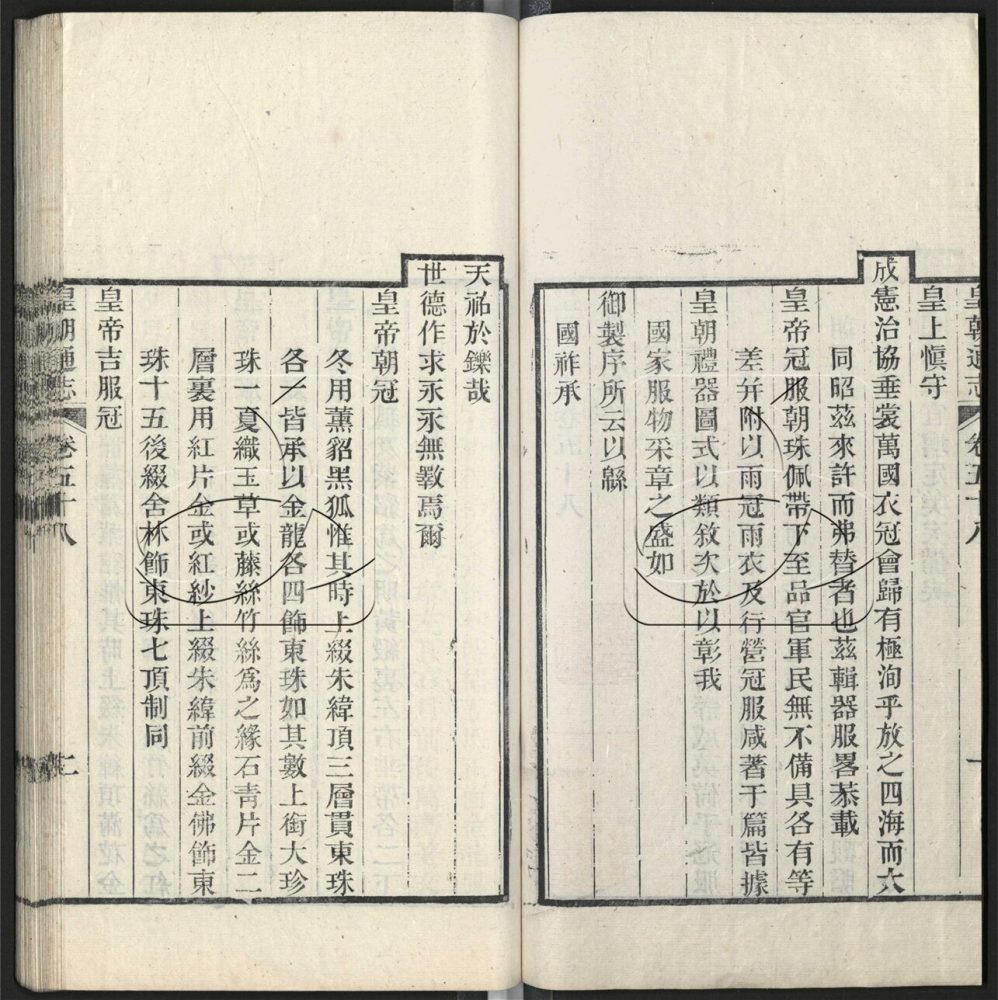 皇朝通志 卷五十八 一
皇上愼守
成憲治協垂裳萬國衣冠會歸有極洵乎放之四海而大
同昭茲來許而弗替者也茲輯器服畧恭載
皇帝冠服朝珠佩帶下至品官軍民無不備具各有等
差并附以雨冠雨衣及行營冠服咸著于篇皆據
皇朝禮器圖式以類敘次於以彰我
國家服物采章之盛如
御製序所云以緜
國祚承
天祐於鑠哉
世德作求永永無斁焉爾
皇帝朝冠
冬用薰貂黑狐惟其時上綴朱緯頂三層貫東珠
各一皆承以金龍各四飾東珠如其數上銜大珍
珠一夏織玉草或藤絲竹絲爲之緣石青片金二
層裏用紅片金或紅紗上綴朱緯前綴金佛飾東
珠十五後綴舍林飾東珠七頂制同
皇帝吉服冠
皇朝通志 卷五十八 二